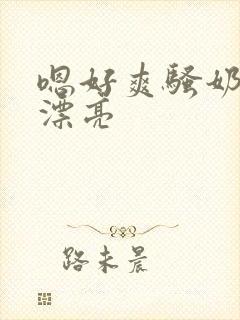 嗯好爽骚奶
漂亮
路未晨